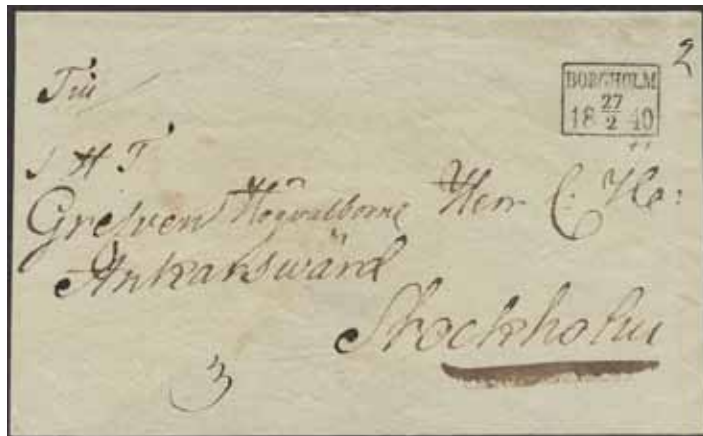 2
BORGHOLM
27
18 2 40
Till
S H T
Grefven Högvälborne Herr C. Hr:
Ankarswärd
Stockholm
3